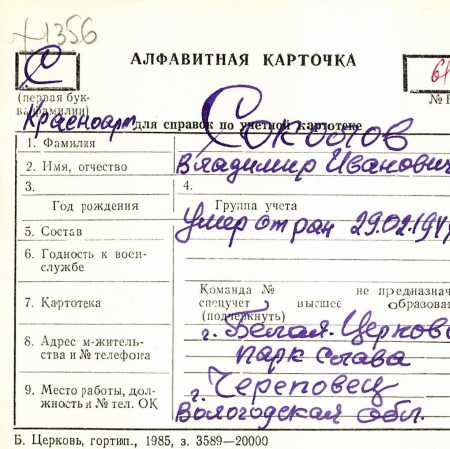 1356
С
АЛФАВИТНАЯ КАРТОЧКА
(первая бук-
ва фамилии)
№
Красноарм.
для справок по учетной картотеке
1. Фамилия
Соколов
2. Имя, отчество
Владимир Иванович
3.
Год рождения
4.
Группа учета
5. Состав
Умер от ран 29.02.194
6. Годность к воен-
службе
7. Картотека
Команда № не предназнача
спецучет, высшее образова
(подчеркнуть)
8. Адрес м-житель-
ства и № телефона
г. Белая-Церков
парк Слава
9. Место работы, дол-
жность и № тел. ОК
г. Череповец
Вологодская обл.
Б. Церковь, гортип., 1985, з. 3589—20000